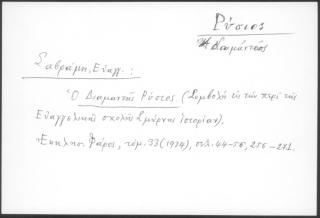 Ρύσιος
Διαμάντης
Σαβράμη, Ευαγγ.:
Ὁ Διαμαντής Ρύσιος. (Συμβολή εἰς τήν περί τῆς
Εὐαγγελικῆς σχολῆς Σμύρνης ἱστορίαν).
Ἐκκλησ. Φάρος, τόμ. 33 (1934), σελ. 44-56, 256-271.